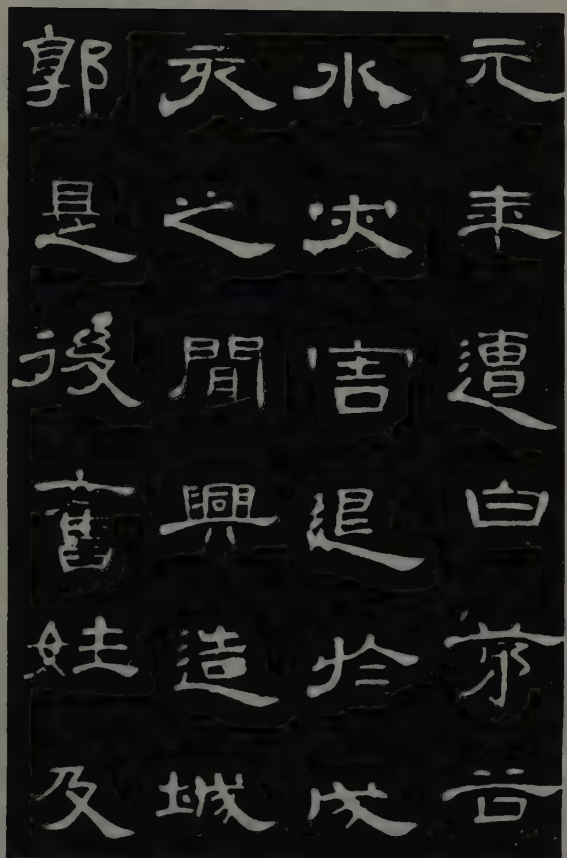 元年遭白茅谷
水灾害退於戌
亥之閒興造城
郭是後舊姓及